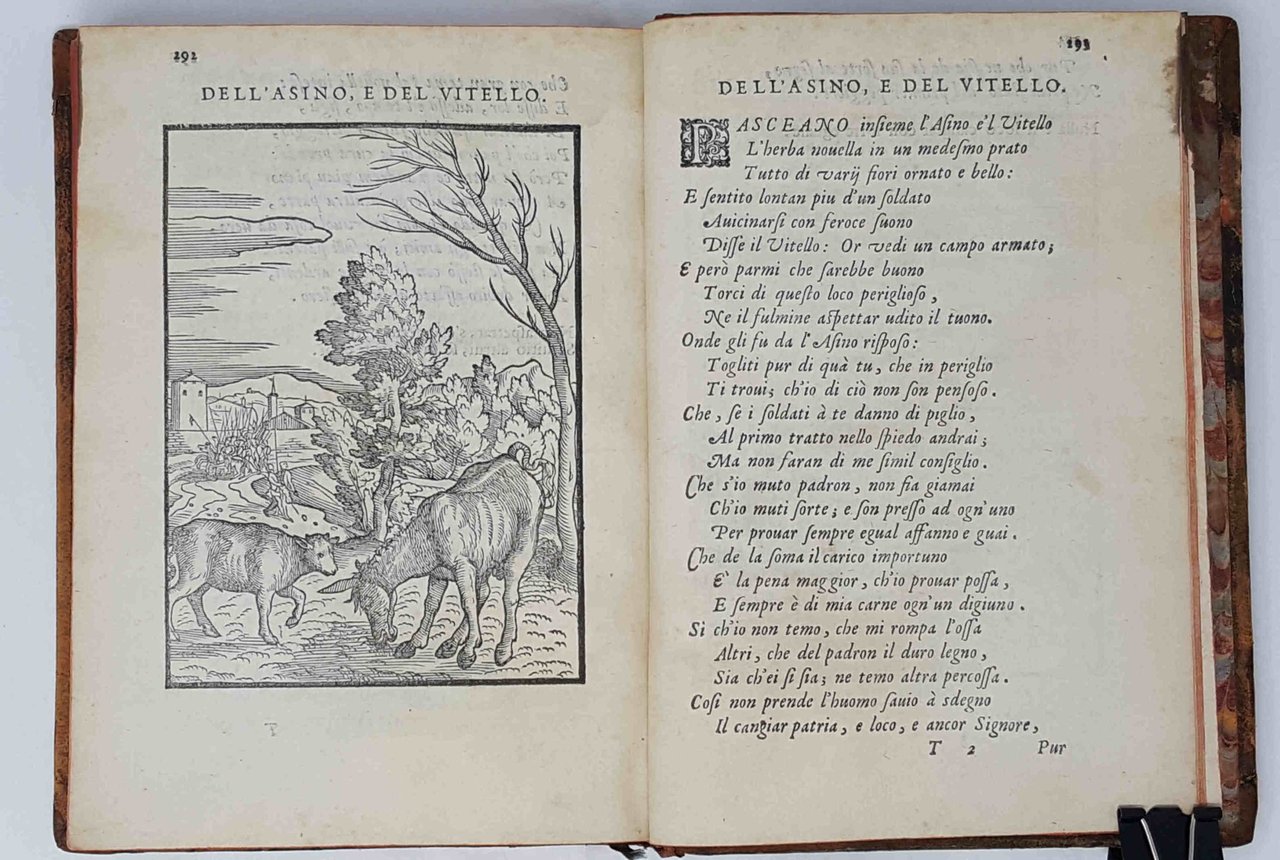 292
DELL'ASINO, E DEL VITELLO.
293
DELL'ASINO, E DEL VITELLO.
PASCEANO inſieme l'Aſino e'l Vitello
L'herba nouella in un medeſmo prato
Tutto di varij fiori ornato e bello:
E ſentito lontan piu d'un ſoldato
Auicinarſi con feroce ſuono
Diſſe il Vitello: Or vedi un campo armato;
E però parmi che ſarebbe buono
Torci di queſto loco periglioſo,
Ne il fulmine aſpettar udito il tuono.
Onde gli fu da l'Aſino riſpoſo:
Togliti pur di quà tu, che in periglio
Ti troui; ch'io di ciò non ſon penſoſo.
Che, ſe i ſoldati à te danno di piglio,
Al primo tratto nello ſpiedo andrai;
Ma non faran di me ſimil conſiglio.
Che s'io muto padron, non fia giamai
Ch'io muti ſorte; e ſon preſſo ad ogn'uno
Per prouar ſempre egual affanno e guai.
Che de la ſoma il carico importuno
E' la pena maggior, ch'io prouar poſſa,
E ſempre è di mia carne ogn'un digiuno.
Sì ch'io non temo, che mi rompa l'oſſa
Altri, che del padron il duro legno,
Sia ch'ei ſi ſia; ne temo altra percoſſa.
Coſi non prende l'huomo ſauio à sdegno
Il cangiar patria, e loco, e ancor Signore,
T 2 Pur